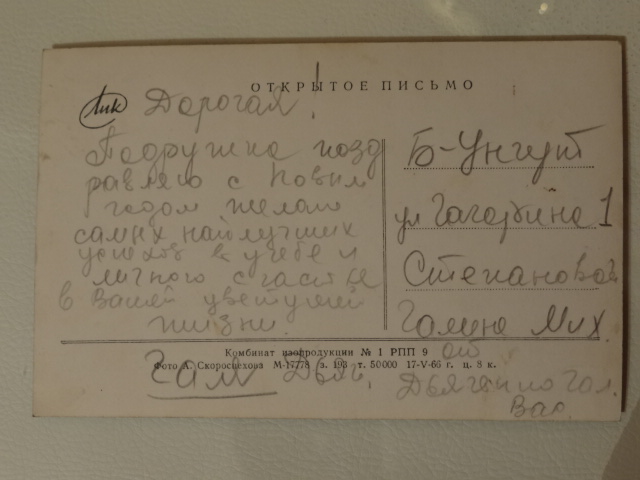 ОТКРЫТОЕ ПИСЬМО
Дорогая!
Подружка позд
равляю с Новым
годом желаю
самых найлучших
успехов в учебе и
личного счастье
в Вашей цветущей
жизни.
Б-Унгут
ул Гагарина 1
Степановой
Галине Мих.
от
Гал.
Вас.
Комбинат изопродукции № 1 РПП 9
Фото А. Скороспехова М-17778 з. 193 т. 50000 17-V-66 г. ц. 3 к.